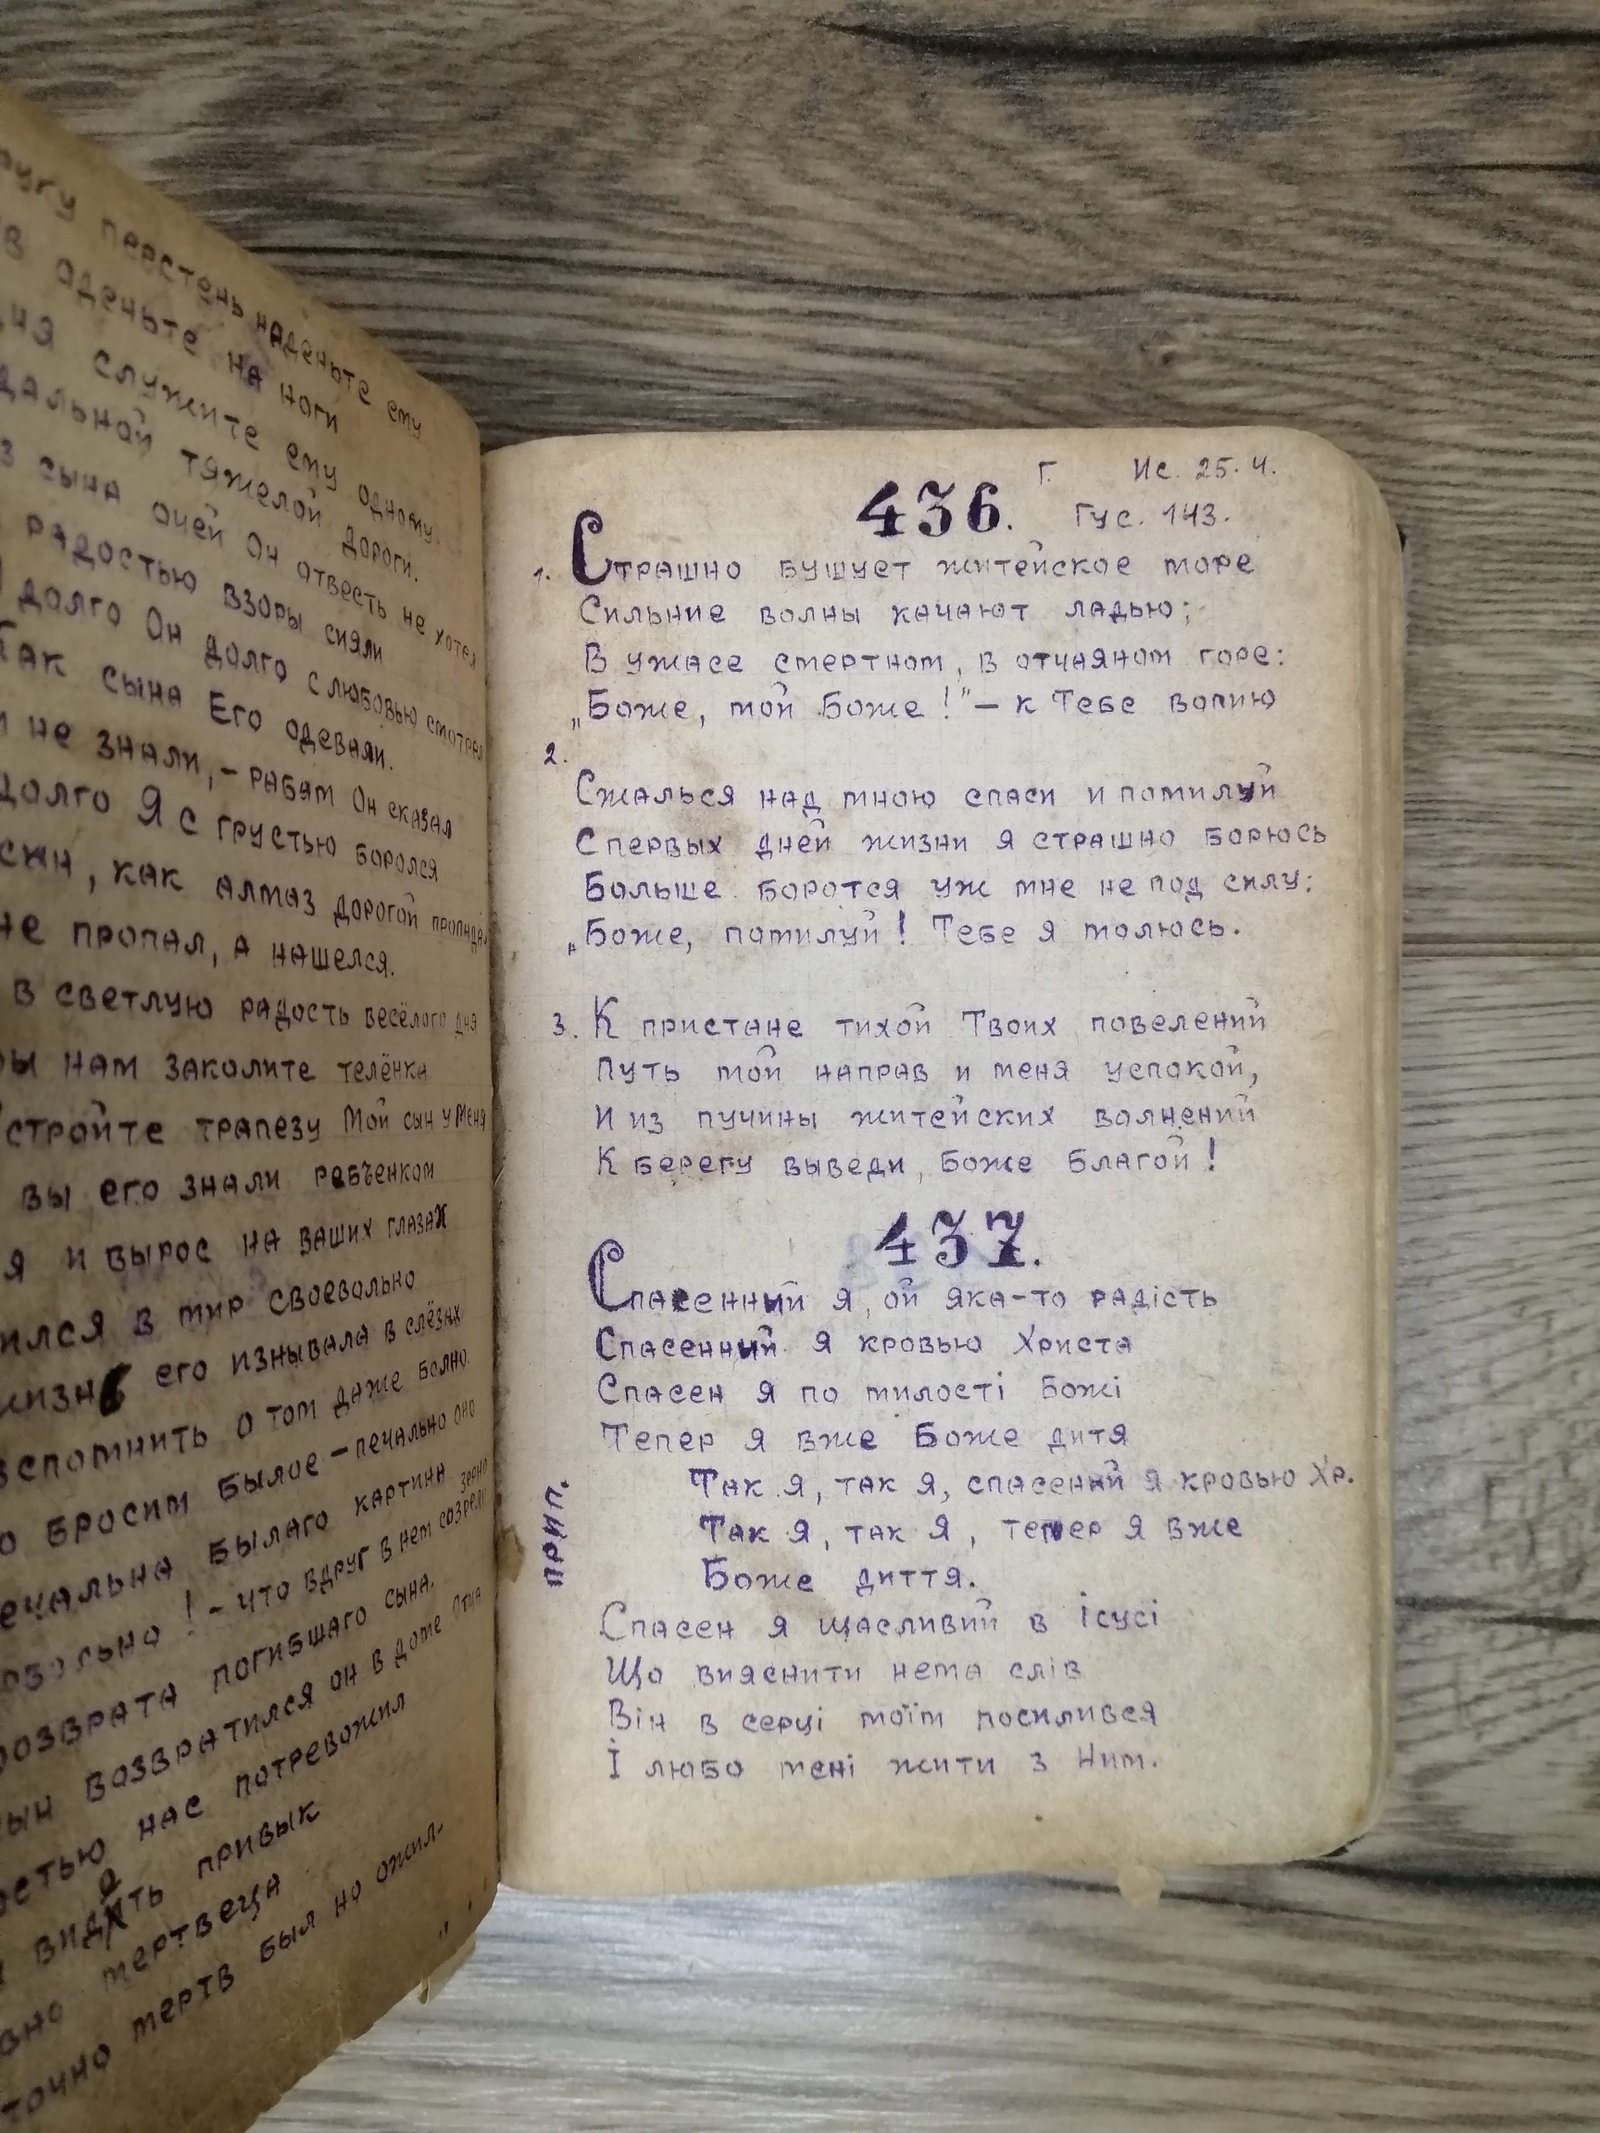 руку перстень наденьте ему
оденьте на ноги
служите ему одному
дальной тяжелой дороги.
сына очей Он отвесть не хотел
радостью взоры сияли
долго Он долго с любовью смотрел
Как сына Его одевали.
не знали, – рабам Он сказал
долго Я с грустью боролся
сын, как алмаз дорогой пропадал
не пропал, а нашелся.
в светлую радость весёлого дня
нам заколите телёнка
стройте трапезу Мой сын у Меня
вы его знали ребъенком
я и вырос на ваших глазах
в мир своевольно
жизнь его изнывала в слёзах
вспомнить о том даже болно
бросим былое – печально оно
печальна былаго картина
довольно! – что вдруг в нем созрело зерно
возврата погибшаго сына.
сын возвратился он в доме Отца
нас потревожил
видать привык
мертвеца
точно мертв был но ожил.
436. Г. Ис. 25. 4.
Гус. 143.
1. Страшно бушует житейское море
Сильние волны качают ладью;
В ужасе смертном, в отчаяном горе:
„Боже, мой Боже!" – к Тебе вопию
2.
Сжалься над мною спаси и помилуй
С первых дней жизни я страшно борюсь
Больше боротся уж мне не под силу:
„Боже, помилуй! Тебе я молюсь.
3. К пристане тихой Твоих повелений
Путь мой направ и меня успокой,
И из пучины житейских волнений
К берегу выведи, Боже Благой!
437.
Спасенный я, ой яка-то радість
Спасенный я кровью Христа
Спасен я по милості Божі
Тепер я вже Боже дитя
Прип. Так я, так я, спасений я кровью Хр.
Так я, так я, тепер я вже
Боже диття.
Спасен я щасливий в ісусі
Що вияснити нема слів
Він в серці моїм посилився
І любо мені жити з Ним.